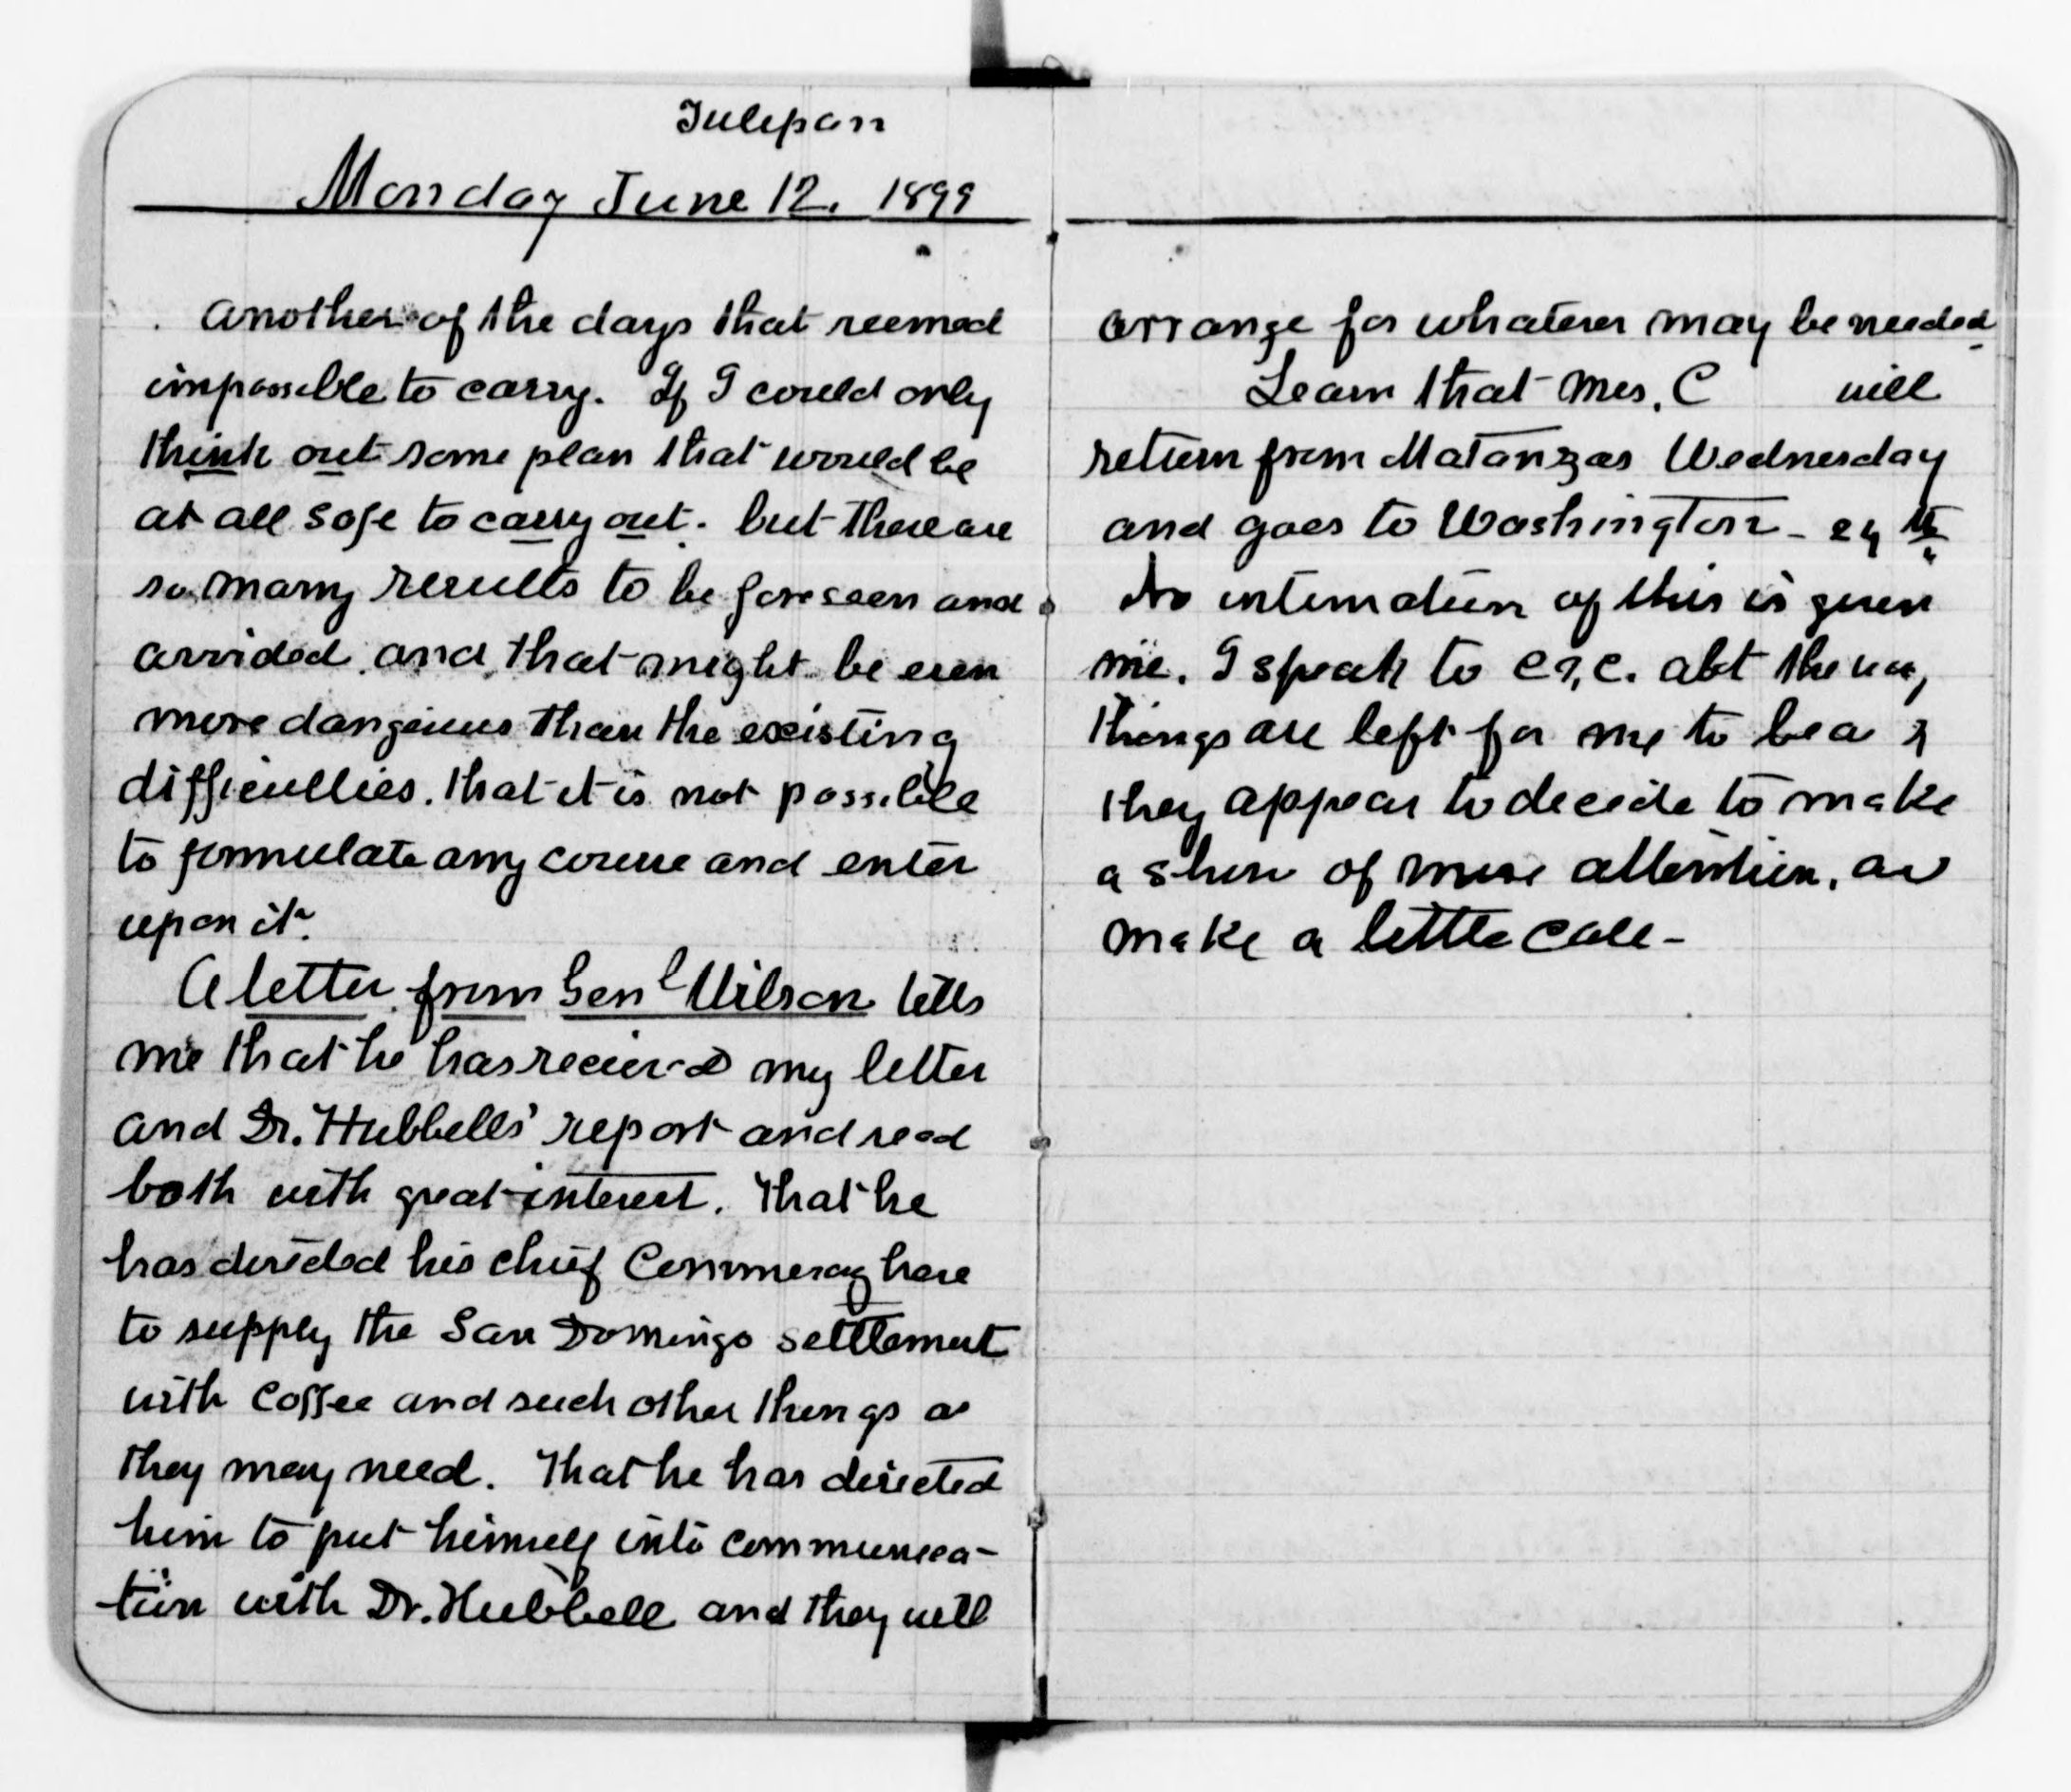 Tulepan
Monday June 12. 1899
another of the days that seemed
impossible to carry. If I could only
think out some plan that would be
at all safe to carry out. but there are
so many results to be foreseen and
avoided. and that might be even
more dangerous than the existing
difficulties. that it is not possible
to formulate any course and enter
upon it.
A letter from Genl Wilson tells
me that he has recieved my letter
and Dr. Hubbells' report and read
both with great interest. That he
has directed his chief Commesary here
to supply the San Domingo settlement
with coffee and such other things as
they may need. That he has directed
him to put himself into communica-
tion with Dr. Hubbell and they will
arrange for whatever may be needed
Learn that Mrs. C will
return from Matanzas Wednesday
and goes to Washington - 24th
No intimation of this is given
me. I speak to abt the way
things are left for me to bear &
they appear to decide to make
a show of more attention. as
make a little call -